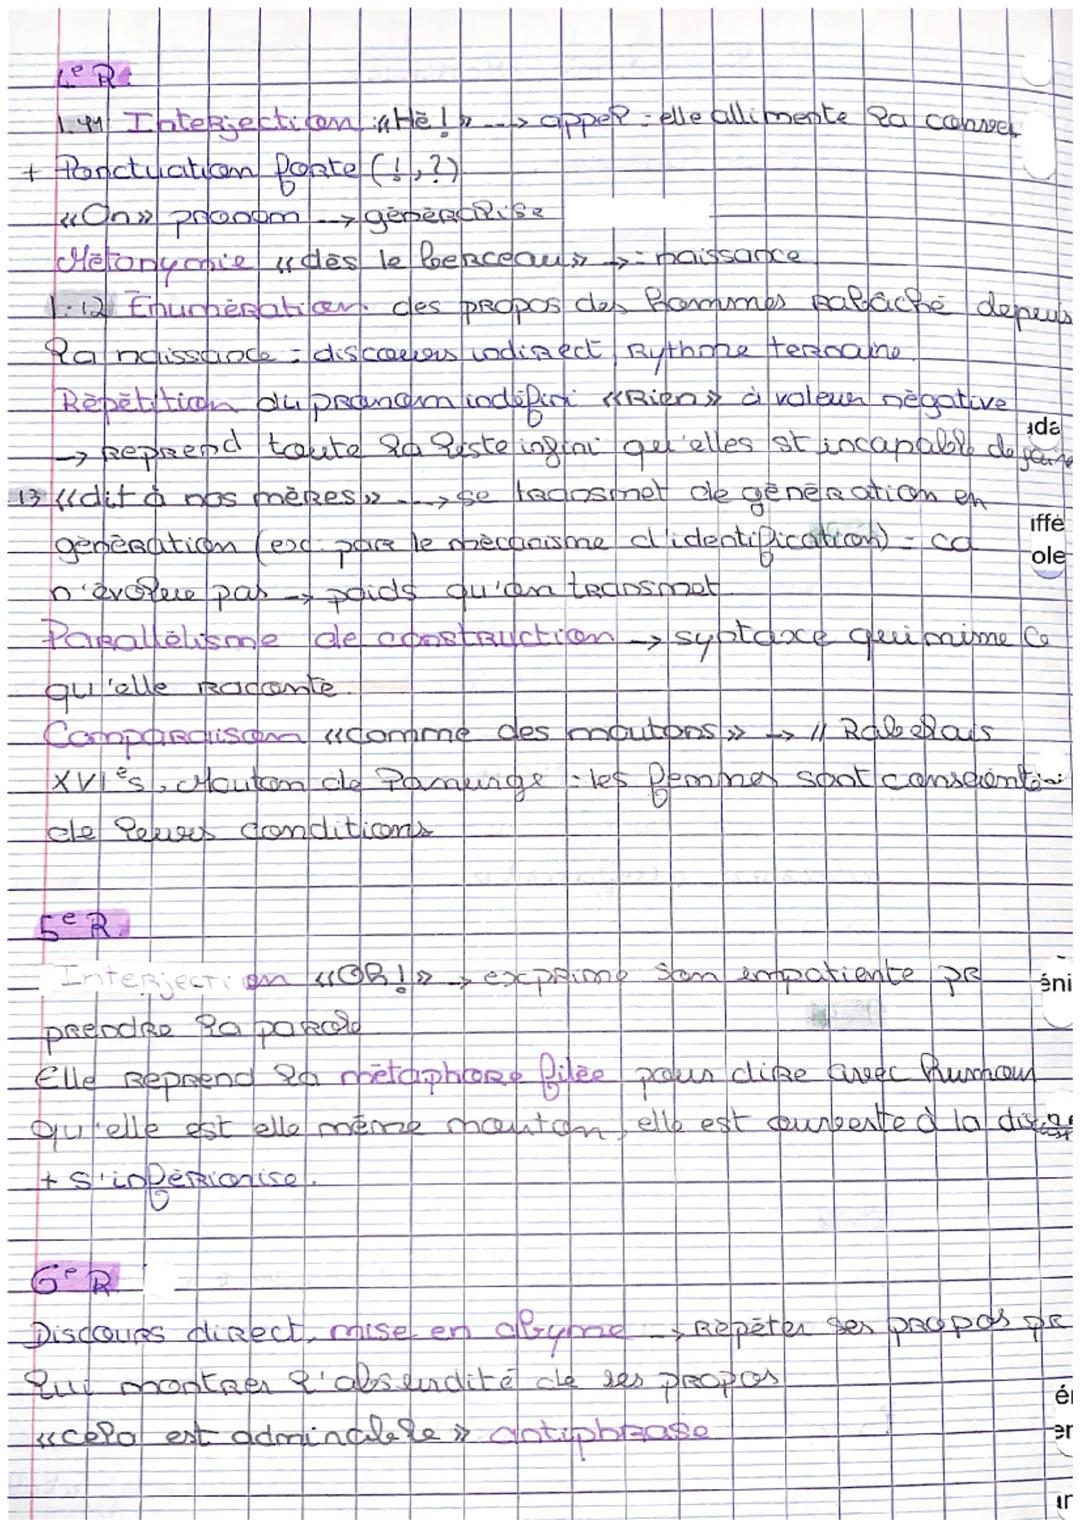 4e R.
l.11 Interjection «Hé!» --> appel = elle allimente la conver
+ Ponctuation forte (!,?)
«On» pronom --> généralise
Métonymie «dès le berceau» -> = naissance
l.12 Énumération des propos des hommes rabâché depuis
la naissance = discours indirect Rythme ternaire.
Répétition du pronom indéfini «Rien» à valeur négative
-> Reprend toute la liste infini qu'elles st incapable de faire
ida
13 «dit à nos mères» --> se transmet de génération en
génération (ex: par le mécanisme d'identification) = ca
iffé
ole
n'évolue pas -> poids qu'on transmet
Parallélisme de construction -> syntaxe qui mime ce
qu'elle raconte.
Comparaison «comme des moutons» -> // Rabelais
XVIe s, Mouton de Panurge = les femmes sont
de leurs conditions
5e R.
Interjection «Oh!» -> exprime son impatiente pr
éni
prendre la parole
Elle reprend la métaphore filée pour dire avec humour
qu'elle est elle même mouton, elle est ouverte à la
+ s'inférionise.
6e R
Discours direct, mise en abyme -> Répéter ses propos pr
lui montrer l'absurdité de ses propos
«cela est admirable» antiphrase